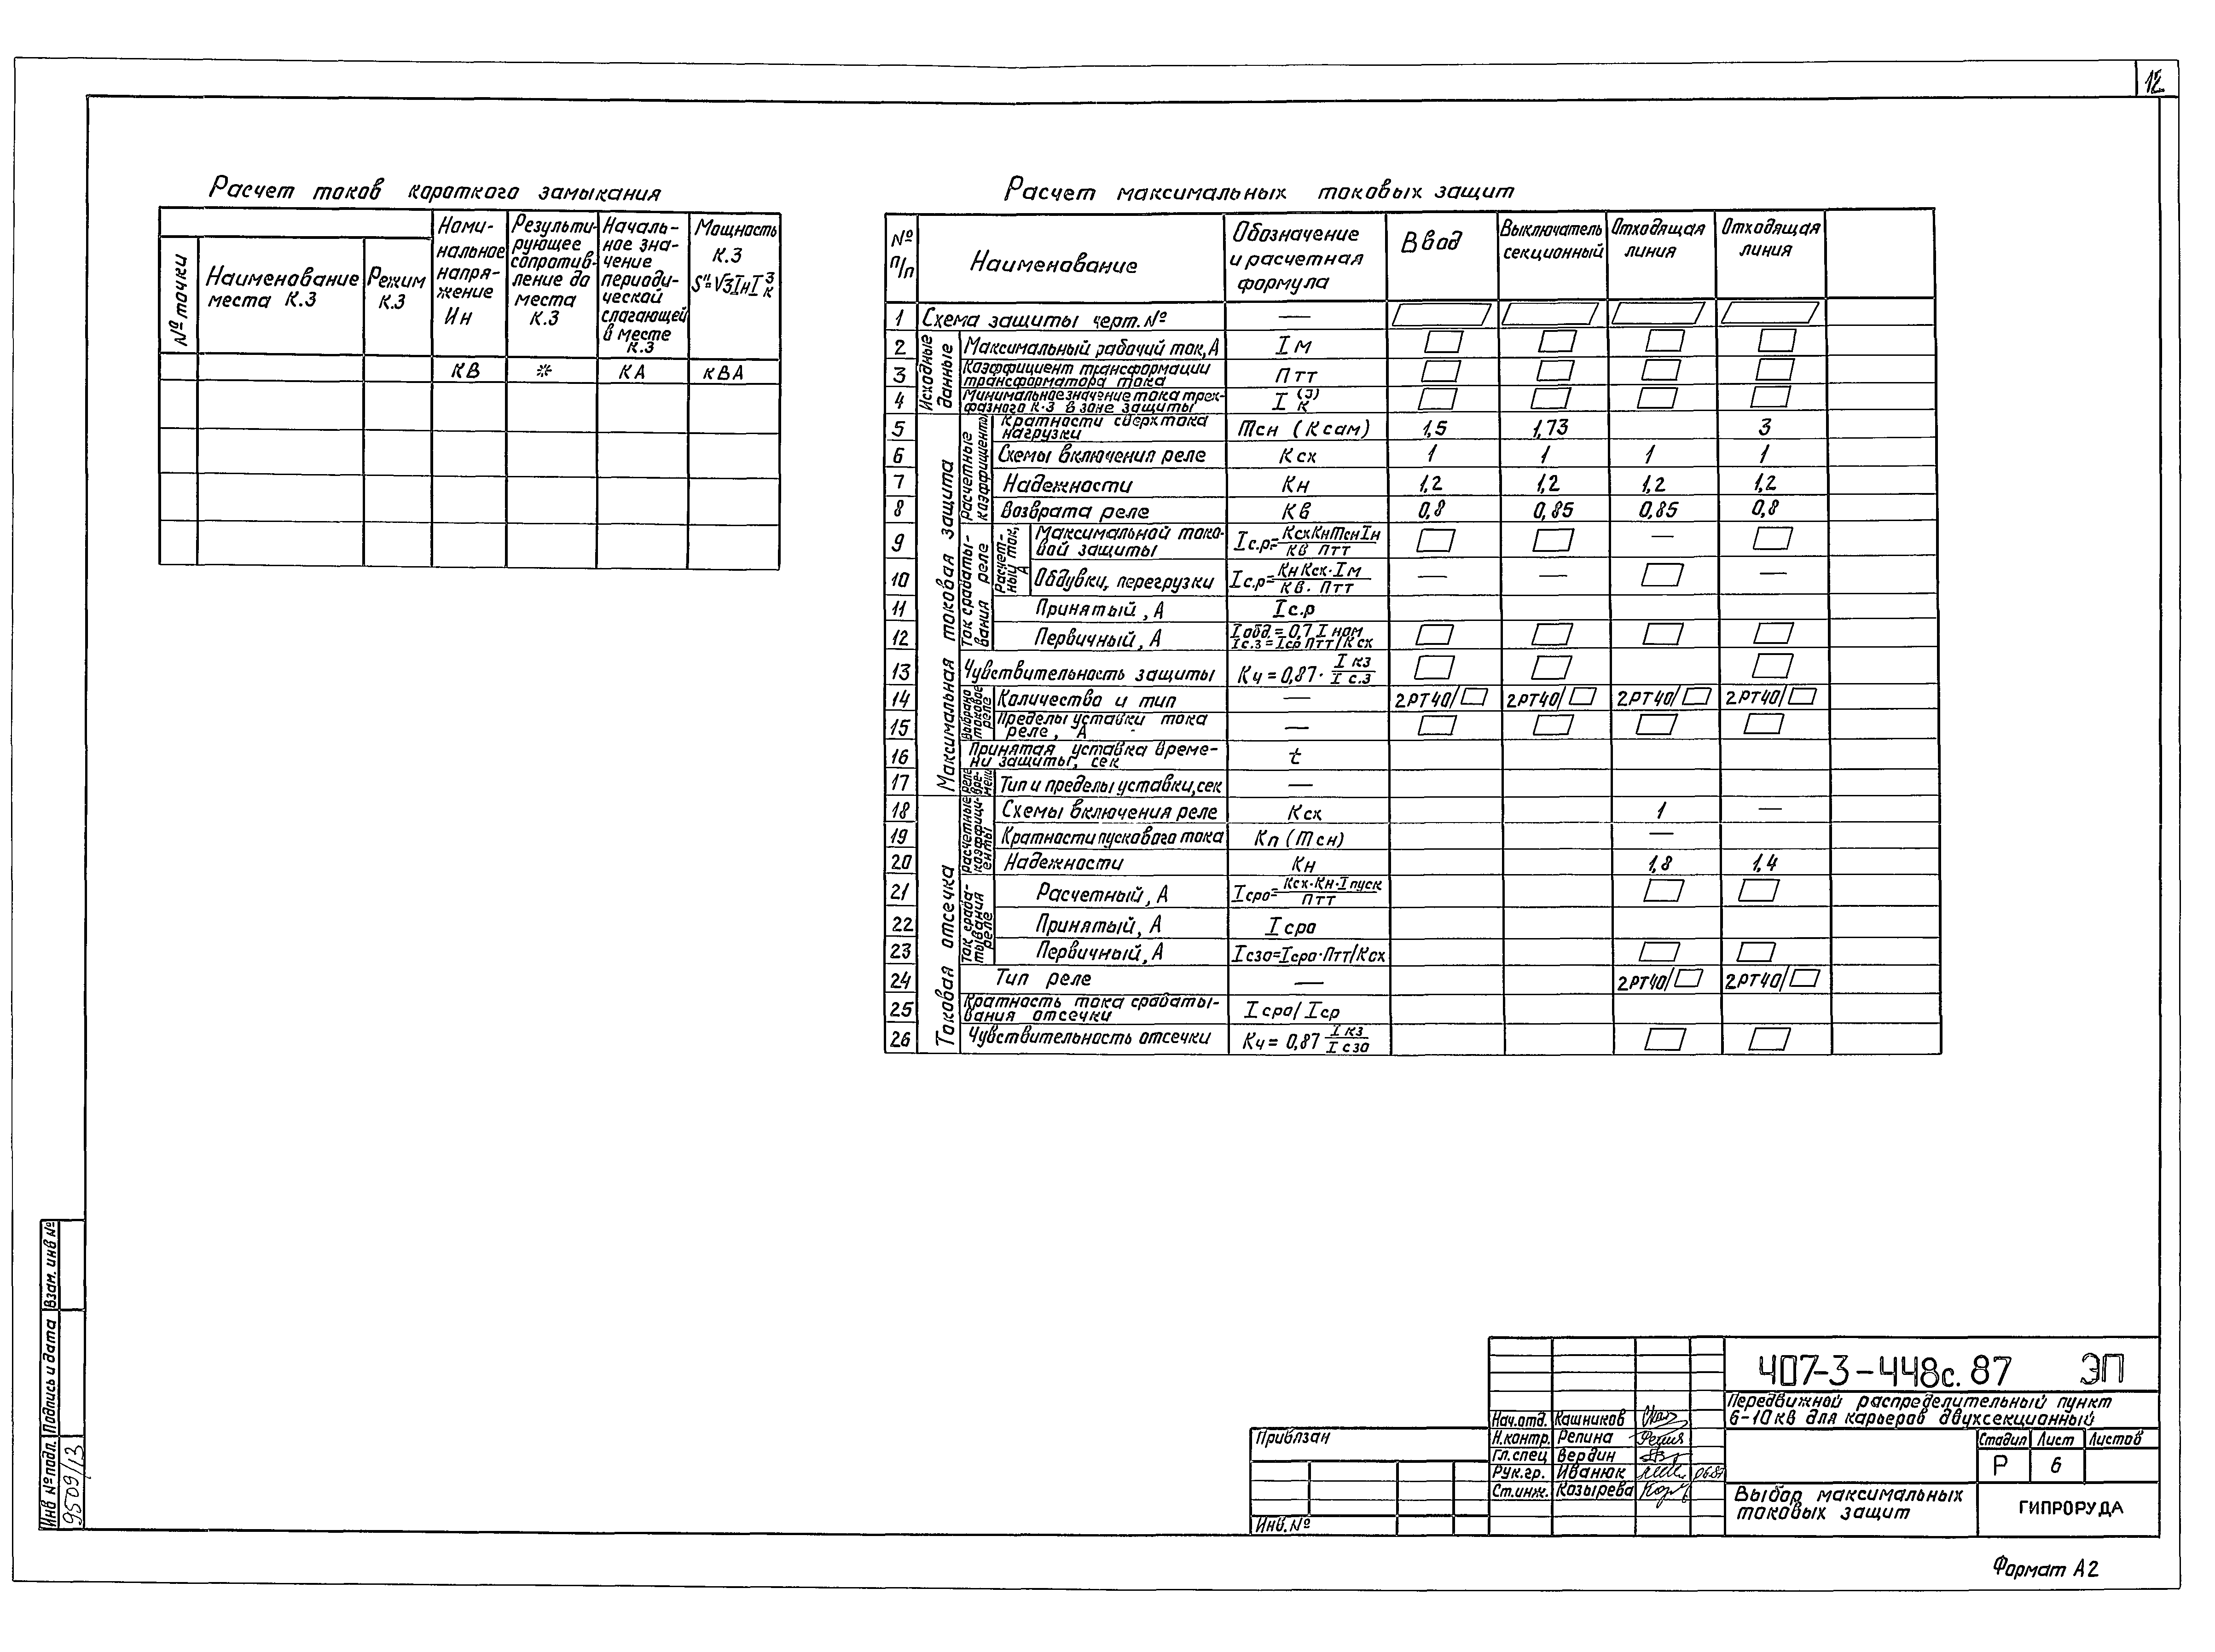 12
Расчет токов короткого замыкания
№ точки
Наименование места К.З
Режим К.З
Номинальное напряжение Ин
Результирующее сопротивление до места К.З
Начальное значение периодической слагающей в месте К.З
Мощность К.З S"=√3IнI³к
КВ * КА КВА
Расчет максимальных токовых защит
№ п/п Наименование Обозначение и расчетная формула Ввод Выключатель секционный Отходящая линия Отходящая линия
1 Схема защиты черт. № —
Исходные данные
2 Максимальный рабочий ток, А Iм
3 Коэффициент трансформации трансформатора тока Птт
4 Минимальное значение тока трехфазного К.З в зоне защиты I(3)к
Максимальная токовая защита
Расчетные коэффициенты
5 Кратности сверхтока нагрузки Тсн (Ксам) 1,5 1,73 3
6 Схемы включения реле Ксх 1 1 1 1
7 Надежности Кн 1,2 1,2 1,2 1,2
8 Возврата реле Кв 0,8 0,85 0,85 0,8
Ток срабатывания реле
Расчетный ток, А
9 Максимальной токовой защиты Iс.р.=КсхКнТснIн/Кв Птт —
10 Обдувки, перегрузки Iс.р=КнКсх·Iм/Кв. Птт — — —
11 Принятый, А Iс.р
12 Первичный, А Iобд.=0,7 Iном Iс.з=Iср Птт/Ксх
13 Чувствительность защиты Кч=0,87·Iкз/Iс.з
Выбрано токовое реле
14 Количество и тип — 2РТ40/ 2РТ40/ 2РТ40/ 2РТ40/
15 Пределы уставки тока реле, А —
16 Принятая уставка времени защиты, сек t
Реле времени
17 Тип и пределы уставки, сек —
Токовая отсечка
Расчетные коэффициенты
18 Схемы включения реле Ксх 1 —
19 Кратности пускового тока Кп (Тсн) —
20 Надежности Кн 1,8 1,4
Ток срабатывания реле
21 Расчетный, А Iсро=Ксх·Кн·Iпуск/Птт
22 Принятый, А Iсро
23 Первичный, А Iсзо=Iсро·Птт/Ксх
24 Тип реле — 2РТ40/ 2РТ40/
25 Кратность тока срабатывания отсечки Iсро/Iср
26 Чувствительность отсечки Кч=0,87 Iкз/Iсзо
Взам. инв №
Подпись и дата
Инв № подл.
9509/13
Привязан
Инв. №
Нач.отд. Кашников
Н.контр. Репина
Гл.спец Вердин
Рук.гр. Иванюк 06.87
Ст.инж. Козырева
407-3-448с.87 ЭП
Передвижной распределительный пункт
6-10кв для карьеров двухсекционный
Стадия Лист Листов
Р 6
Выбор максимальных
токовых защит
ГИПРОРУДА
Формат А2